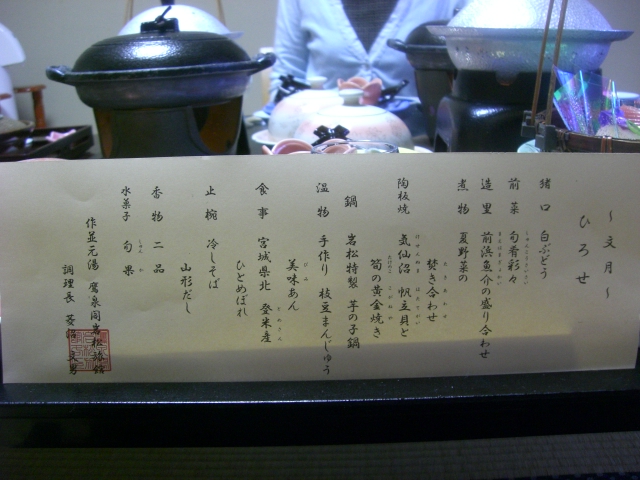 ～文月～
ひろせ
猪口 白ぶどう
前菜 旬肴彩々
造里 前浜魚介の盛り合わせ
煮物 夏野菜の
焚き合わせ
陶板焼 気仙沼 帆立貝と
筍の黄金焼き
鍋 岩松特製 芋の子鍋
温物 手作り 枝豆まんじゅう
美味あん
食事 宮城県北 登米産
ひとめぼれ
止椀 冷しそば
山形だし
香物 二品
水菓子 旬果
作並元湯 鷹泉閣岩松旅館
調理長